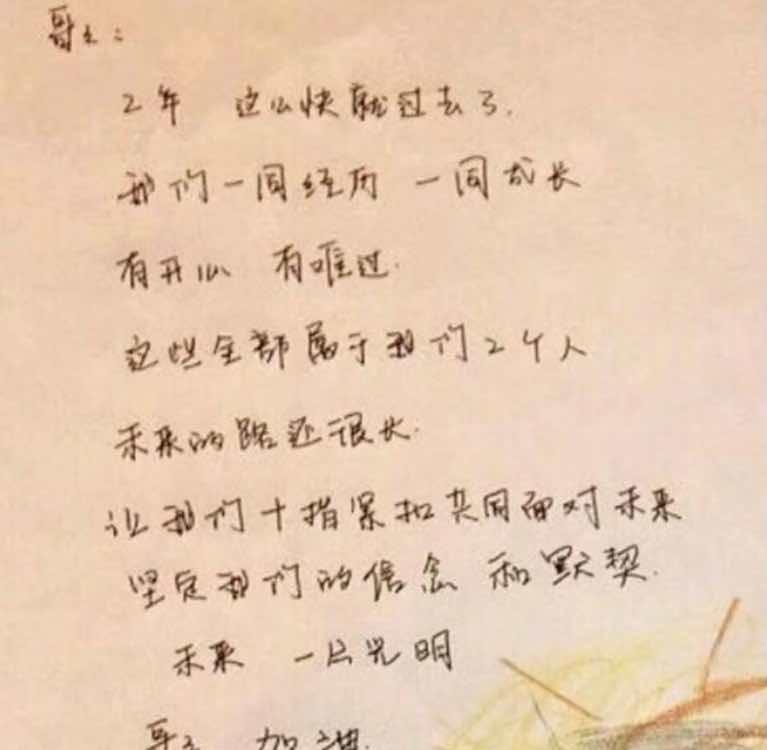 哥哥:
2年 这么快就过去了.
我们一同经历 一同成长
有开心 有难过.
这些全部属于我们2个人
未来的路还很长.
让我们十指紧扣共同面对未来
坚定我们的信念 和默契.
未来 一片光明
哥哥 加油.